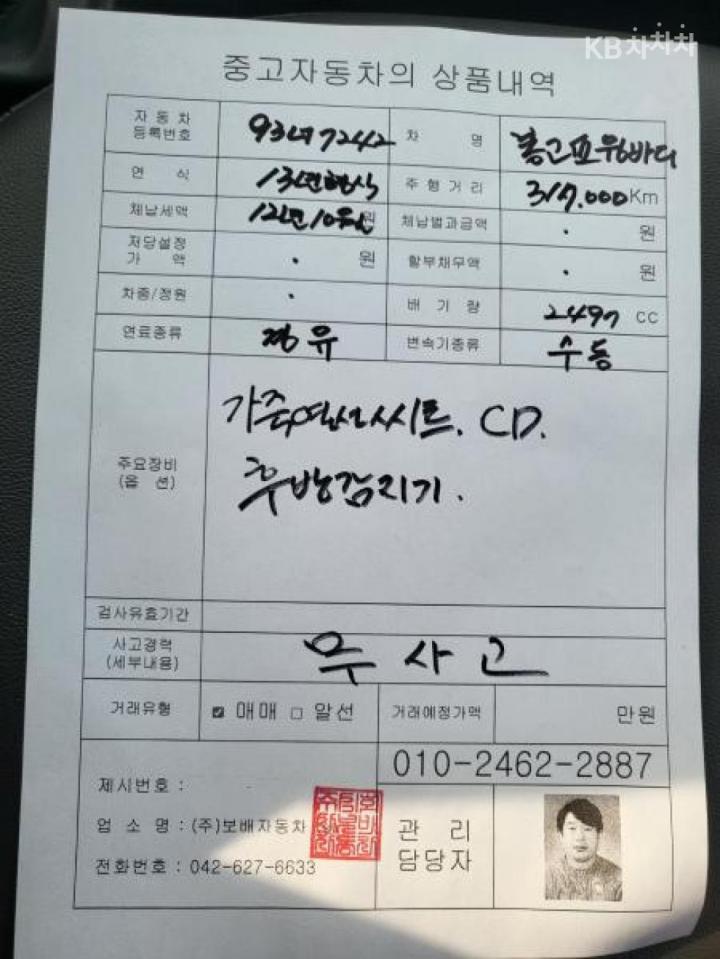 KB차차차
중고자동차의 상품내역
자동차 등록번호 93너7242 차 명 봉고 파워바디
연 식 13년형식 주행거리 317,000Km
체납세액 12년10월 원 체납벌과금액 . 원
저당설정 가 액 . 원 할부채무액 . 원
차종/정원 . 배 기 량 2497 CC
연료종류 경유 변속기종류 수동
주요장비 (옵 션) 가죽열선시트. CD.
후방감지기.
검사유효기간
사고경력 (세부내용) 무사고
거래유형 ☑ 매매 □ 알선 거래예정가액 만원
010-2462-2887
제시번호 :
업 소 명 : (주)보배자동차
전화번호 : 042-627-6633
관 리
담당자